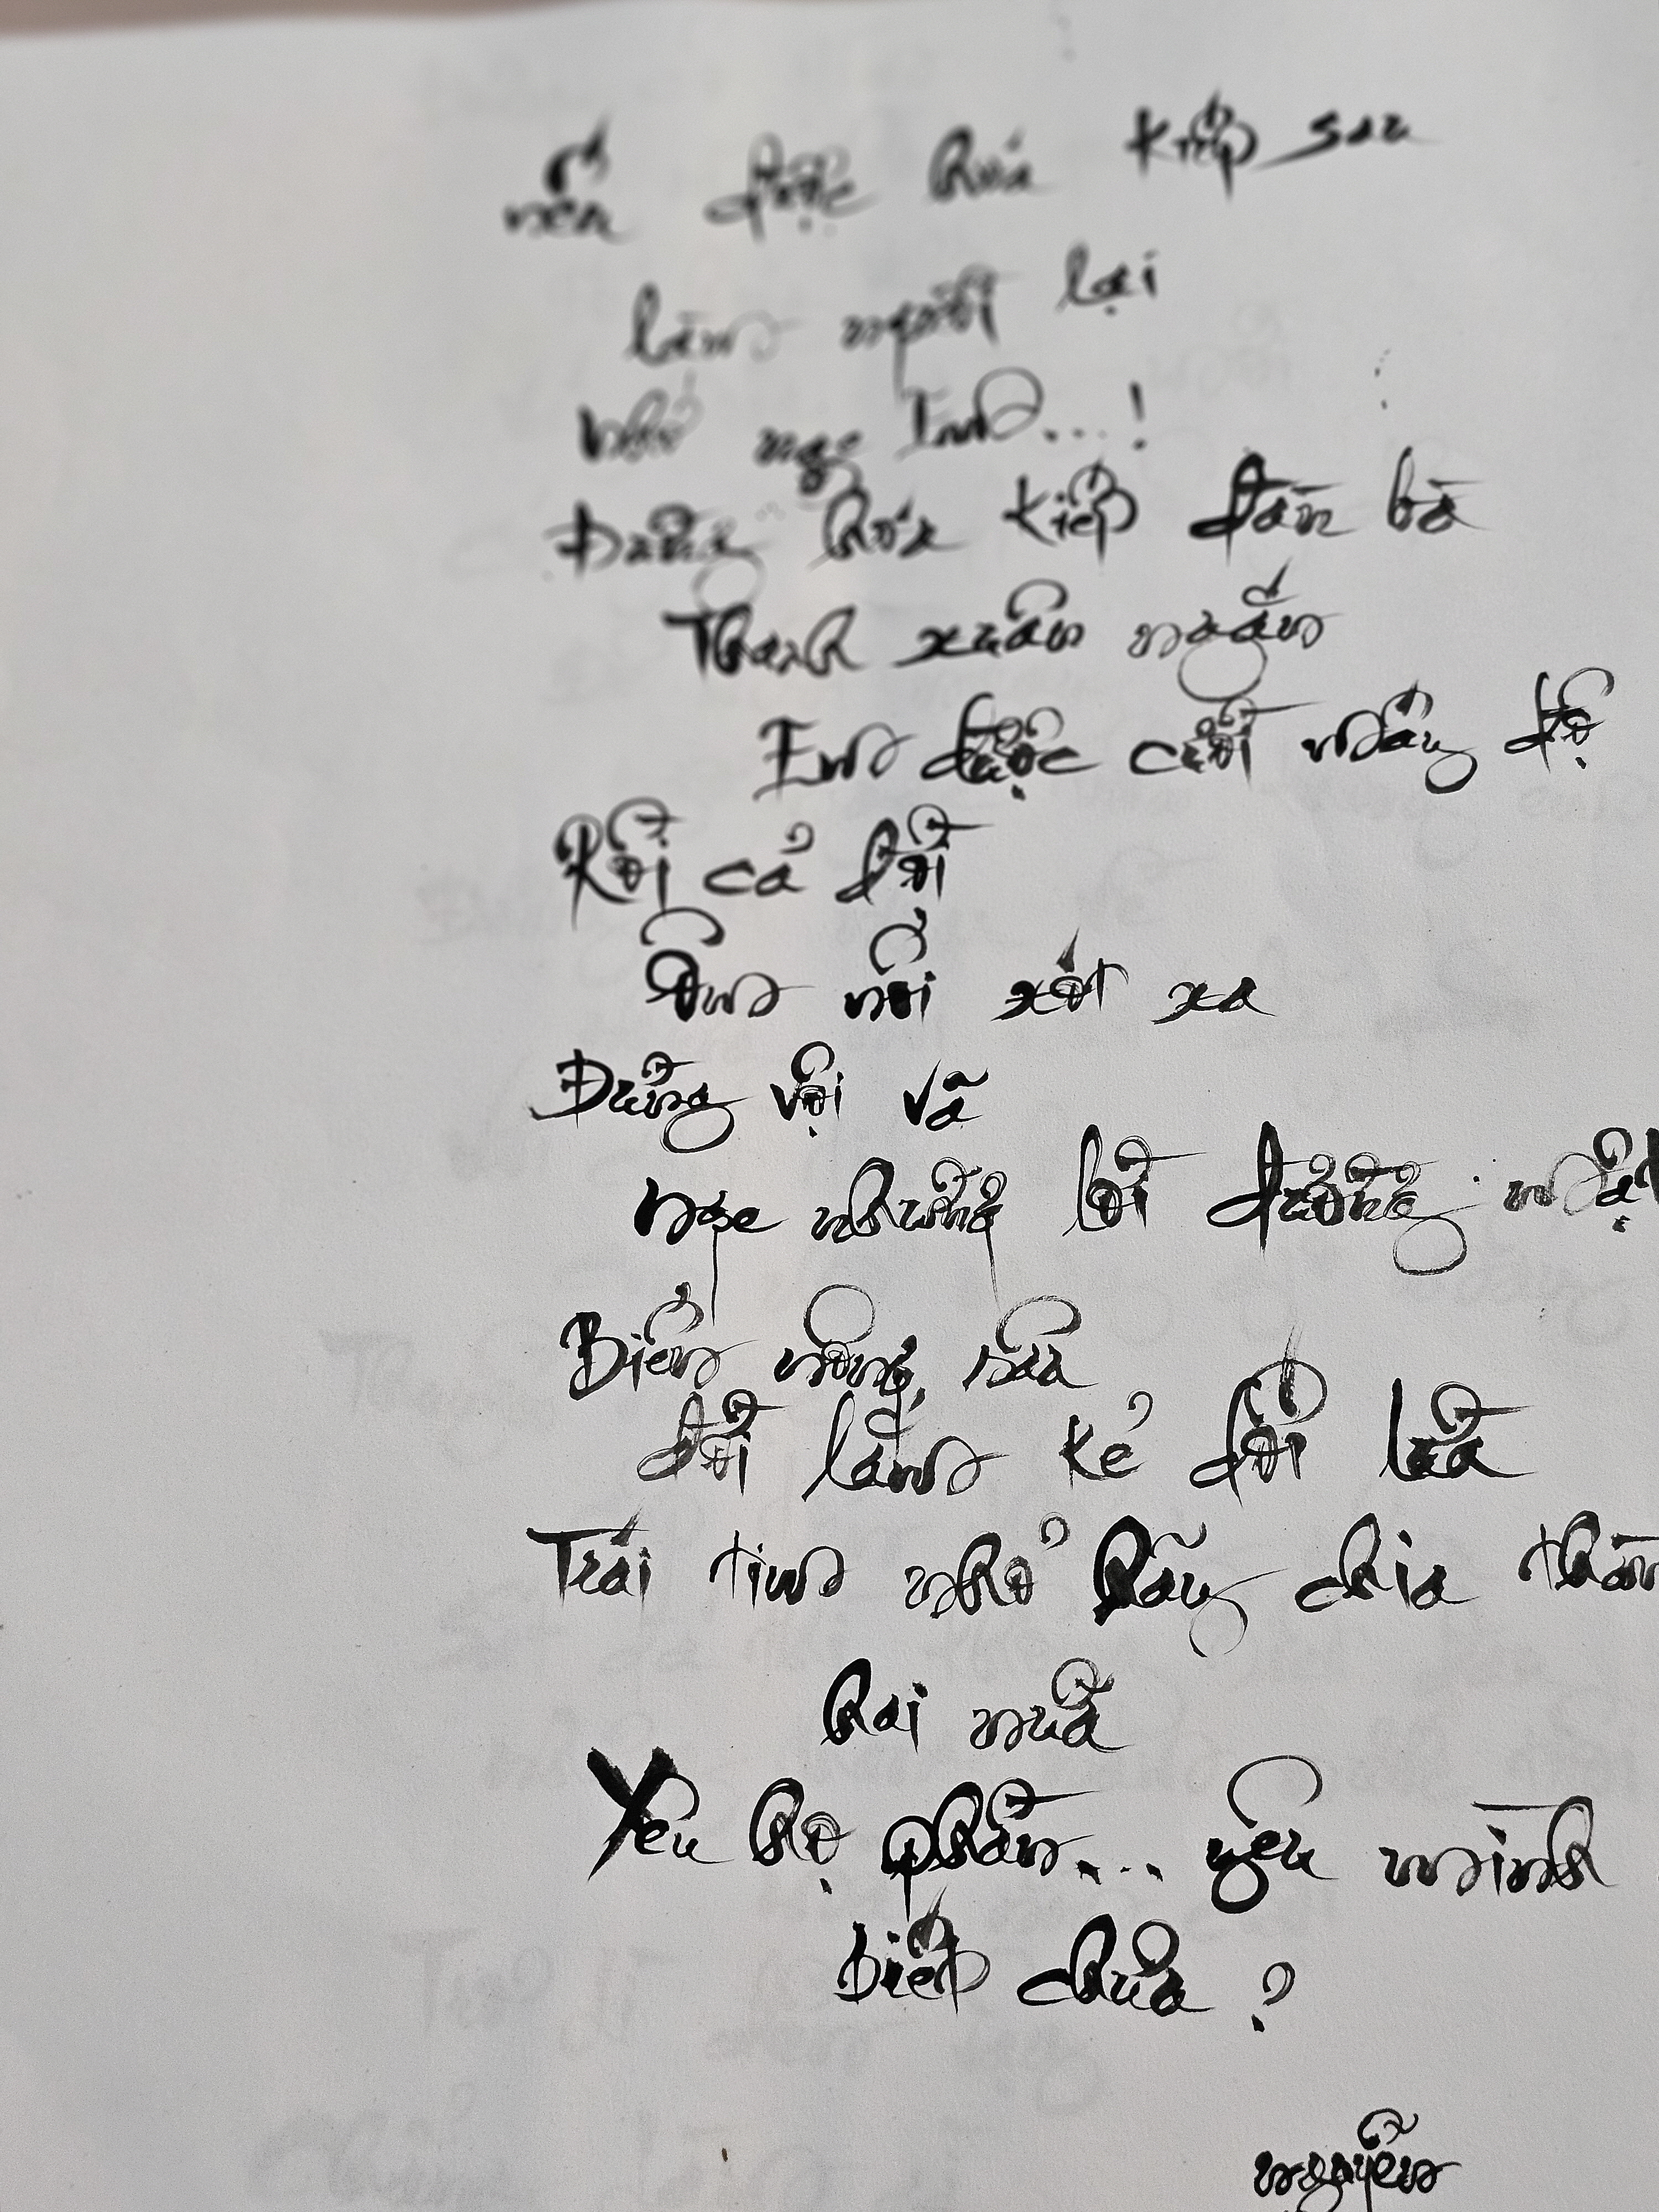 nếu được hứa kiếp sau
làm người lại
nhớ nge Em...!
Đừng hứa kiếp đàn bà
Thanh xuân ngắn
Em được cười mấy độ
Rồi cả đời
Ôm nỗi xót xa
Đừng vội vã
nge những lời đường mật
Biển nông, sâu
đời lắm kẻ dối lừa
Trái tim nhỏ hãy chia
hai nửa
Yêu họ phần... yêu mình
biết chưa ?
nguyễn